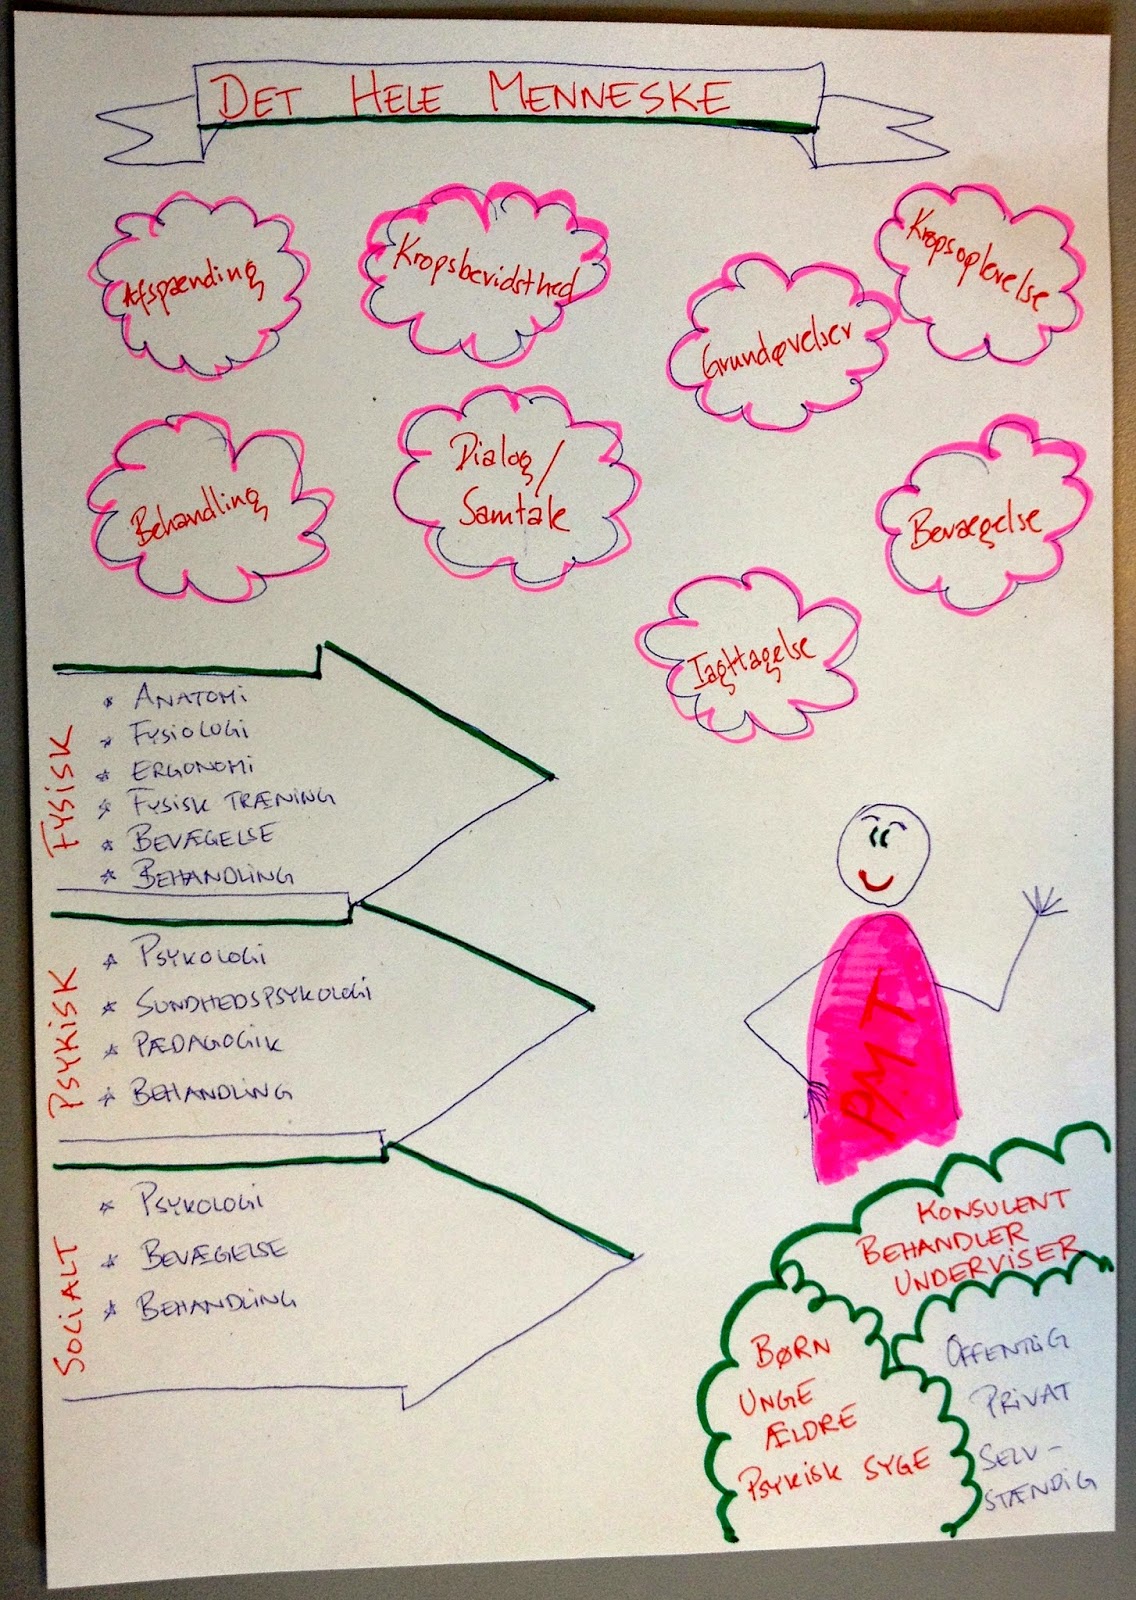 DET HELE MENNESKE
Afspænding
Kropsbevidsthed
Grundøvelser
Kropsoplevelse
Behandling
Dialog/
Samtale
Bevægelse
Iagttagelse
FYSISK
* ANATOMI
* FYSIOLOGI
* ERGONOMI
* FYSISK TRÆNING
* BEVÆGELSE
* BEHANDLING
PSYKISK
* PSYKOLOGI
* SUNDHEDSPSYKOLOGI
* PÆDAGOGIK
* BEHANDLING
SOCIALT
* PSYKOLOGI
* BEVÆGELSE
* BEHANDLING
P/MT
KONSULENT
BEHANDLER
UNDERVISER
BØRN
UNGE
ÆLDRE
PSYKISK SYGE
OFFENTLIG
PRIVAT
SELV-
STÆNDIG